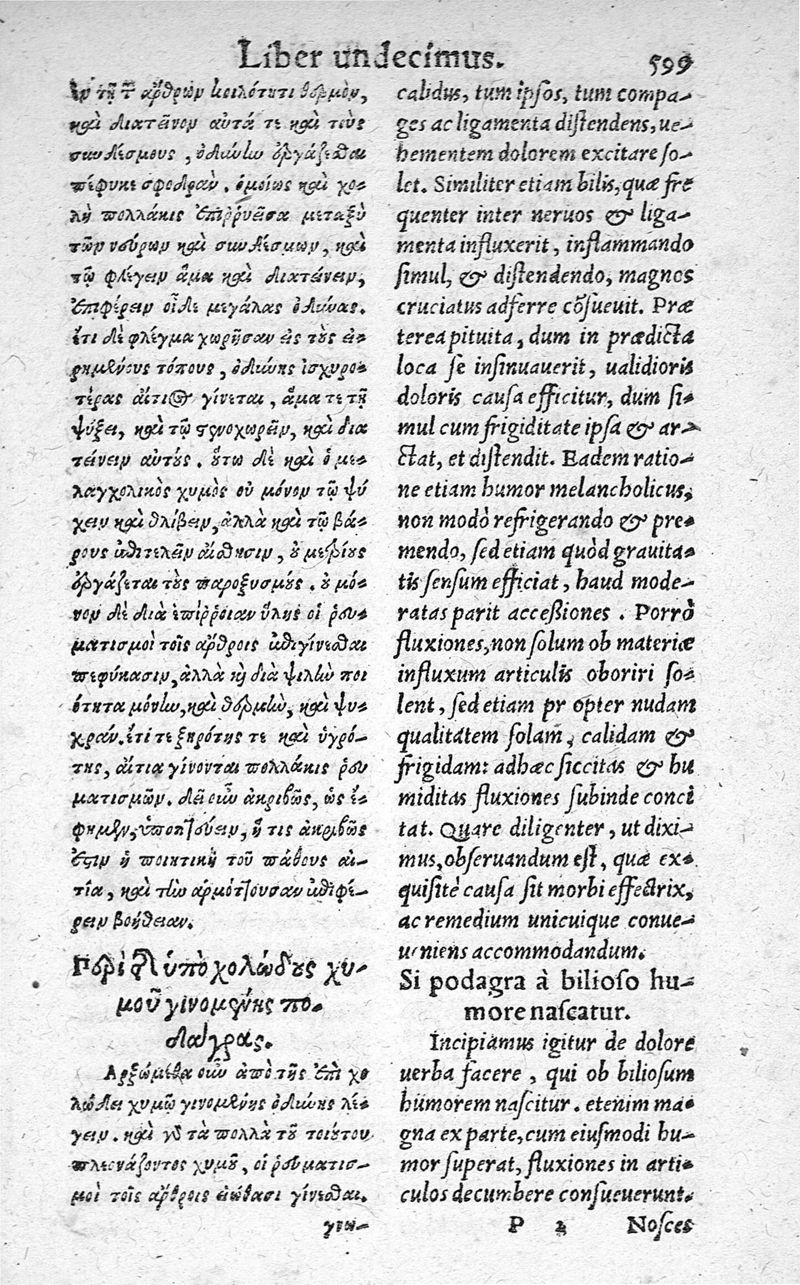 Liber undecimus. 599
ἐν τῇ τ ἄρθρων κοιλότητι θερμὸν,
καὶ διατεῖνον αὐτά τε καὶ τοὺς
συνδέσμους, ὀδύνην ἐργάζεσθαι
πέφυκε σφοδράν. ὁμοίως καὶ χο-
λὴ πολλάκις ἐπιρρυεῖσα μεταξὺ
τῶν νεύρων καὶ συνδέσμων, καὶ
τῷ φλέγειν ἅμα καὶ διατείνειν,
ἐπιφέρειν οἶδε μεγάλας ὀδύνας.
ἔτι δὲ φλέγμα χωρῆσαν εἰς τοὺς εἰ-
ρημένους τόπους, ὀδύνης ἰσχυρο-
τέρας αἴτιον γίνεται, ἅμα τε τῇ
ψύξει, καὶ τῷ στενοχωρεῖν, καὶ δια
τείνειν αὐτούς. οὕτω δὲ καὶ ὁ με-
λαγχολικὸς χυμὸς οὐ μόνον τῷ ψύ
χειν καὶ θλίβειν, ἀλλὰ καὶ τῷ βά-
ρους ἐπιτελεῖν αἴσθησιν, οὐ μετρίους
ἐργάζεται τοὺς παροξυσμούς. οὐ μό-
νον δὲ διὰ ἐπίρροιαν ὕλης οἱ ῥευ-
ματισμοὶ τοῖς ἄρθροις ἐπιγίνεσθαι
πεφύκασιν, ἀλλὰ καὶ διὰ ψιλὴν ποι
ότητα μόνην, καὶ θερμὴν, καὶ ψυ-
χράν. ἔτι τε ξηρότης τε καὶ ὑγρό-
της, αἴτια γίνονται πολλάκις ῥευ
ματισμῶν. δεῖ οὖν ἀκριβῶς, ὡς ἔ-
φημεν, ὑποπτεύειν, ἥ τις ἀκριβῶς
ἐστιν ἡ ποιητικὴ τοῦ πάθους αἰ-
τία, καὶ τὴν ἁρμόττουσαν ἐπιφέ-
ρειν βοήθειαν.
Περὶ τῆς ὑπὸ χολώδους χυ-
μοῦ γινομένης πο-
δάγρας.
Ἀρξώμεθα οὖν ἀπὸ τῆς ἐπὶ χο
λώδει χυμῷ γινομένης ὀδύνης λέ-
γειν. καὶ γὰρ τὰ πολλὰ τοῦ τοιούτου
πλεονάζοντος χυμοῦ, οἱ ῥευματισ-
μοὶ τοῖς ἄρθροις εἰώθασι γίνεσθαι.
γνω-
calidus, tum ipsos, tum compa-
ges ac ligamenta distendens, ue-
hementem dolorem excitare so-
let. Similiter etiam bilis, quæ fre
quenter inter neruos & liga-
menta influxerit, inflammando
simul, & distendendo, magnos
cruciatus adferre cõsueuit. Præ
terea pituita, dum in prædicta
loca se insinuauerit, ualidioris
doloris causa efficitur, dum si-
mul cum frigiditate ipsa & ar-
ctat, et distendit. Eadem ratio-
ne etiam humor melancholicus,
non modò refrigerando & pre-
mendo, sed etiam quòd grauita-
tis sensum efficiat, haud mode-
ratas parit accessiones. Porrò
fluxiones, non solum ob materiæ
influxum articulis oboriri so-
lent, sed etiam pr opter nudam
qualitatem solam, calidam &
frigidam: adhæc siccitas & hu
miditas fluxiones subinde conci
tat. Quare diligenter, ut dixi-
mus, obseruandum est, quæ ex-
quisitè causa sit morbi effectrix,
ac remedium unicuique conue-
ueniens accommodandum.
Si podagra à bilioso hu-
more nascatur.
Incipiamus igitur de dolore
uerba facere, qui ob biliosum
humorem nascitur. etenim ma-
gna ex parte, cum eiusmodi hu-
mor superat, fluxiones in arti-
culos decumbere consueuerunt.
P 2 Nosces